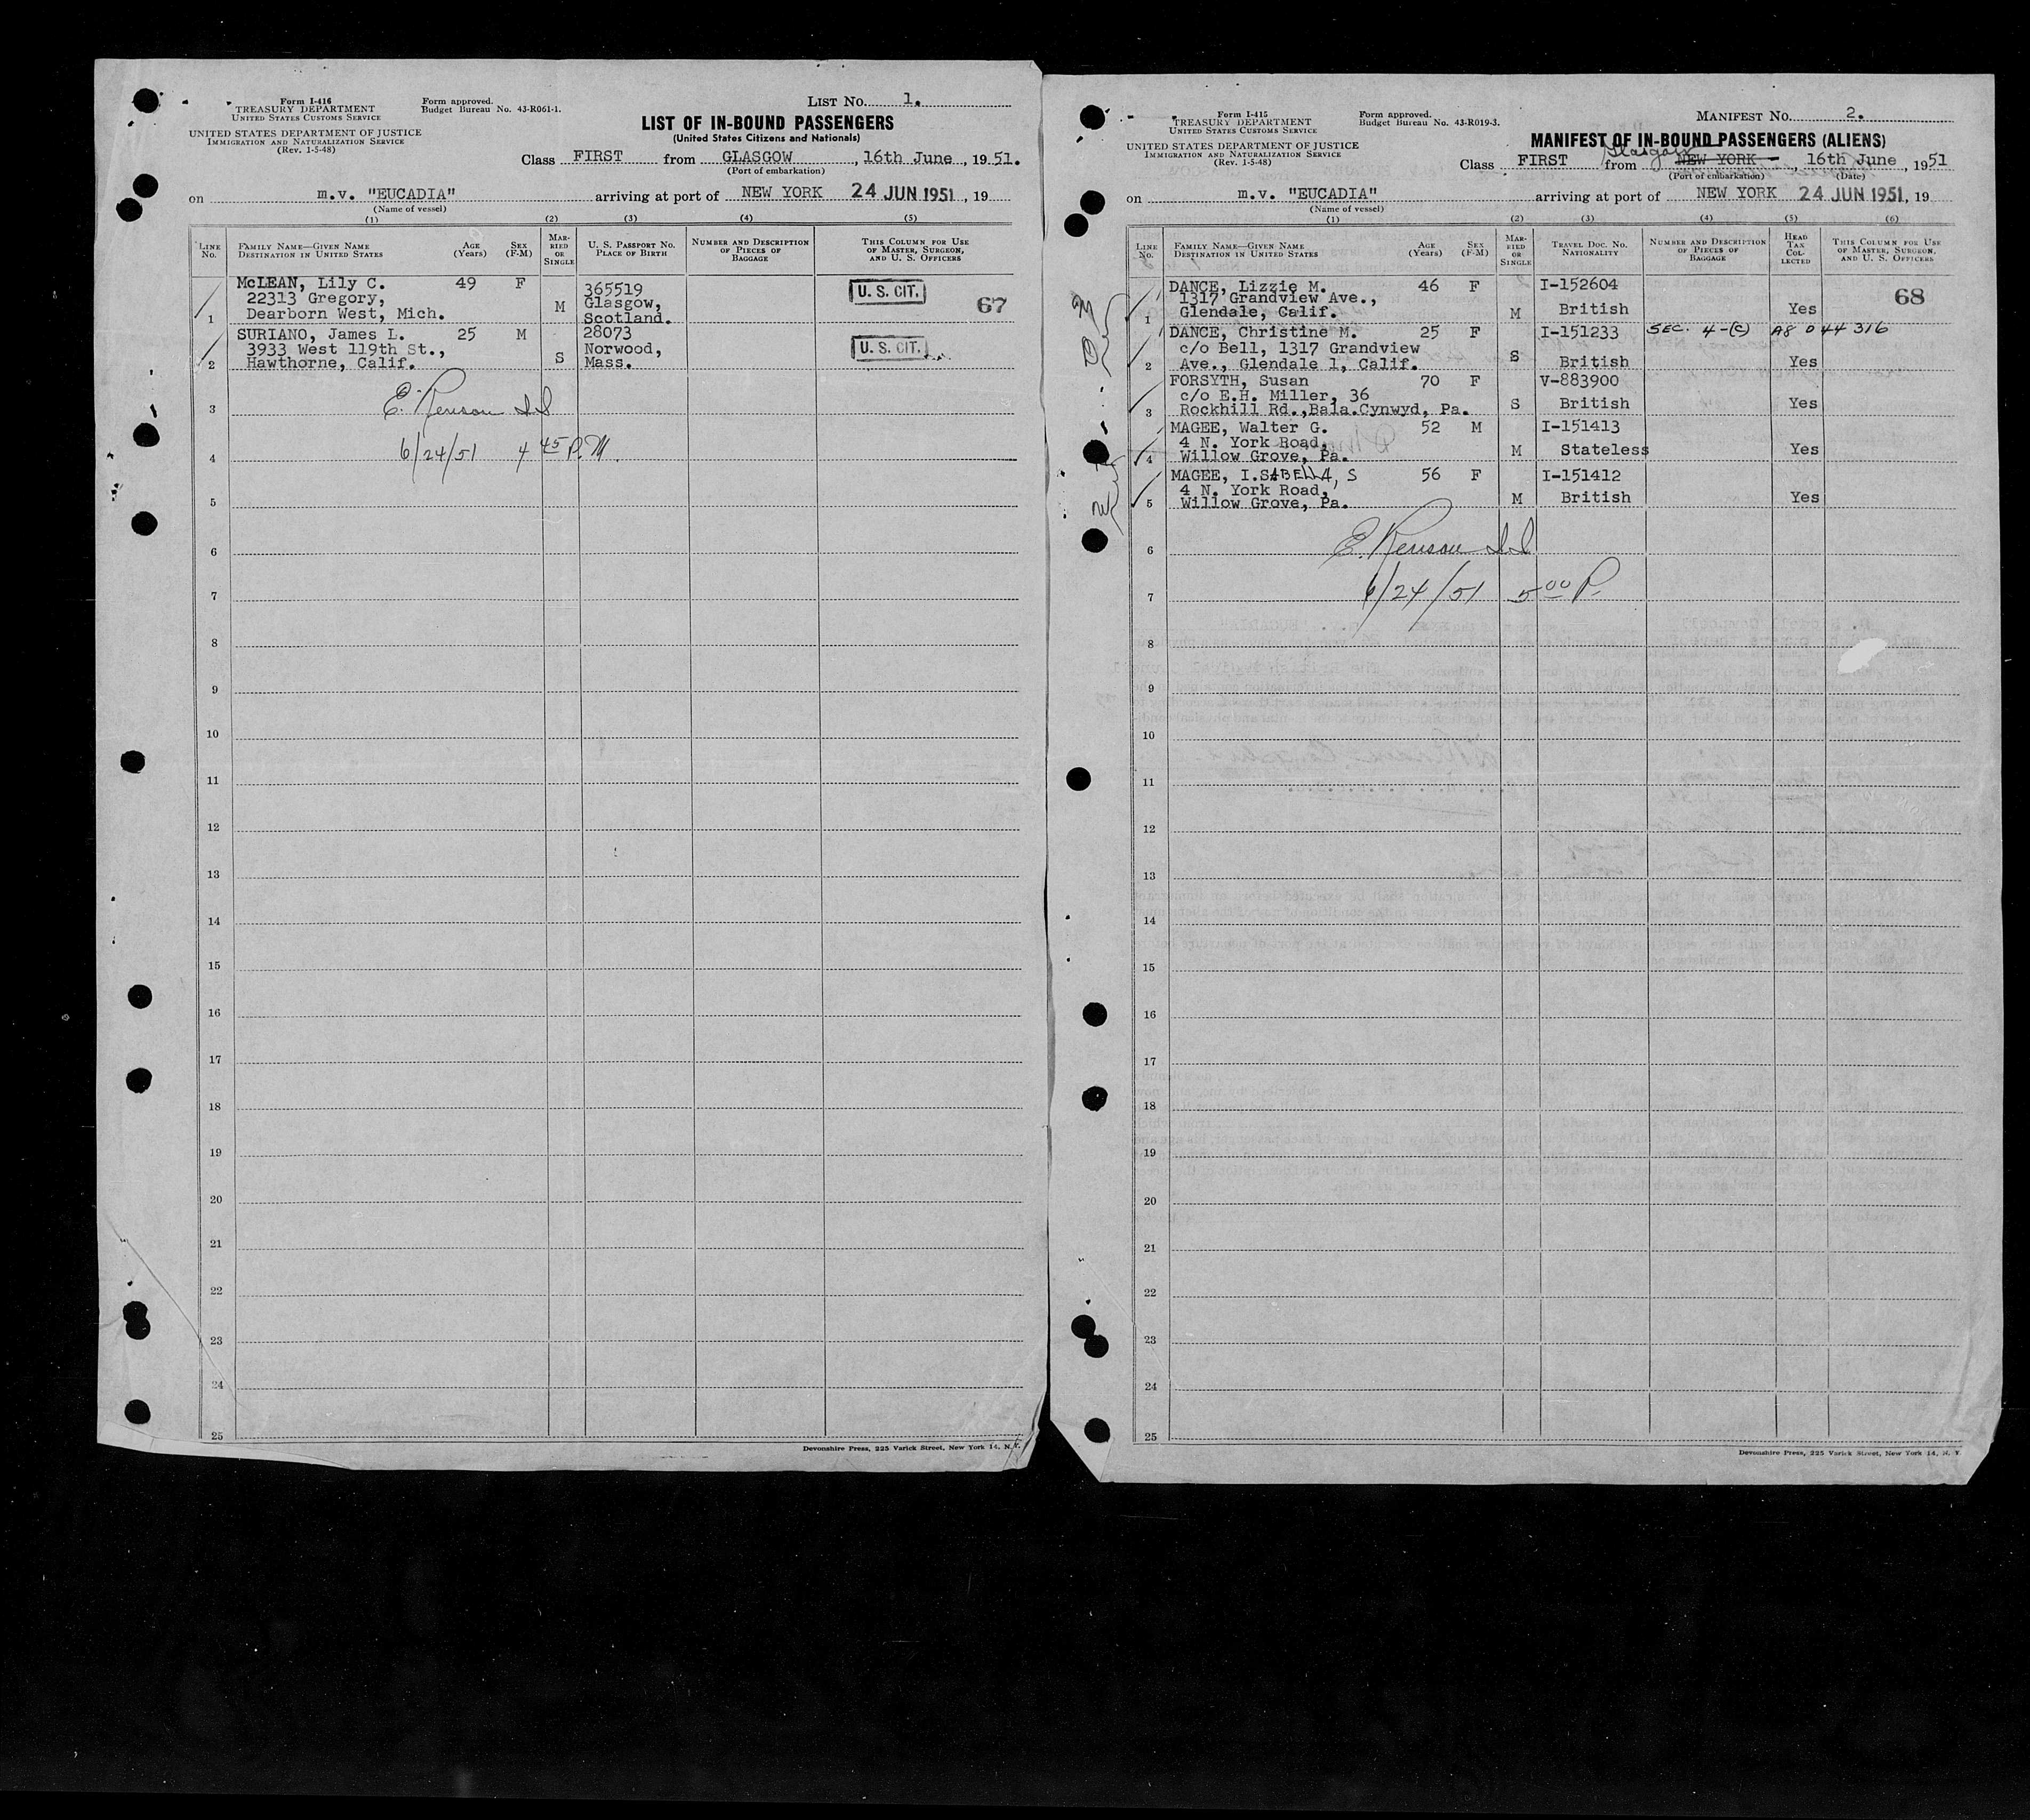 Form I-416
TREASURY DEPARTMENT
UNITED STATES CUSTOMS SERVICE
UNITED STATES DEPARTMENT OF JUSTICE
IMMIGRATION AND NATURALIZATION SERVICE
(Rev. 1-5-48)
Form approved.
Budget Bureau No. 43-R061-1.
LIST NO. 1.
LIST OF IN-BOUND PASSENGERS
(United States Citizens and Nationals)
Class FIRST from GLASGOW, 16th June, 1951.
(Port of embarkation)
on m.v. "EUCADIA" arriving at port of NEW YORK 24 JUN 1951, 19
(Name of vessel)
(1) (2) (3) (4) (5)
LINE No. FAMILY NAME—GIVEN NAME DESTINATION IN UNITED STATES AGE (Years) SEX (F-M) MARRIED OR SINGLE U. S. PASSPORT NO. PLACE OF BIRTH NUMBER AND DESCRIPTION OF PIECES OF BAGGAGE THIS COLUMN FOR USE OF MASTER, SURGEON, AND U. S. OFFICERS
McLEAN, Lily C. 49 F 365519 U. S. CIT.
22313 Gregory, Glasgow, 67
1 Dearborn West, Mich. M Scotland.
SURIANO, James L. 25 M 28073
3933 West 119th St., Norwood, U. S. CIT.
2 Hawthorne, Calif. S Mass.
3 E. Renson II
4 6/24/51 4 45 P.M.
5
6
7
8
9
10
11
12
13
14
15
16
17
18
19
20
21
22
23
24
25
Devonshire Press, 225 Varick Street, New York 14, N.Y.
Form I-415
TREASURY DEPARTMENT
UNITED STATES CUSTOMS SERVICE
UNITED STATES DEPARTMENT OF JUSTICE
IMMIGRATION AND NATURALIZATION SERVICE
(Rev. 1-5-48)
Form approved.
Budget Bureau No. 43-R019-3.
MANIFEST NO. 2.
MANIFEST OF IN-BOUND PASSENGERS (ALIENS)
Glasgow
Class FIRST from NEW YORK, 16th June, 1951
(Port of embarkation) (Date)
on m.v. "EUCADIA" arriving at port of NEW YORK 24 JUN 1951, 19
(Name of vessel)
(1) (2) (3) (4) (5) (6)
LINE No. FAMILY NAME—GIVEN NAME DESTINATION IN UNITED STATES AGE (Years) SEX (F-M) MARRIED OR SINGLE TRAVEL DOC. NO. NATIONALITY NUMBER AND DESCRIPTION OF PIECES OF BAGGAGE HEAD TAX COLLECTED THIS COLUMN FOR USE OF MASTER, SURGEON, AND U. S. OFFICERS
DANCE, Lizzie M. 46 F I-152604 68
1317 Grandview Ave.,
1 Glendale, Calif. M British Yes
DANCE, Christine M. 25 F I-151233 SEC. 4-(C) A8 044 316
c/o Bell, 1317 Grandview S
2 Ave., Glendale 1, Calif. British Yes
FORSYTH, Susan 70 F V-883900
c/o E.H. Miller, 36
3 Rockhill Rd.,Bala.Cynwyd, Pa. S British Yes
MAGEE, Walter G. 52 M I-151413
4 N. York Road,
4 Willow Grove, Pa. M Stateless Yes
MAGEE, I.SABELLA, S 56 F I-151412
4 N. York Road,
5 Willow Grove, Pa. M British Yes
6 E. Renson II
7 6/24/51 5 00 P.
8
9
10
11
12
13
14
15
16
17
18
19
20
21
22
23
24
25
Devonshire Press, 225 Varick Street, New York 14, N. Y.